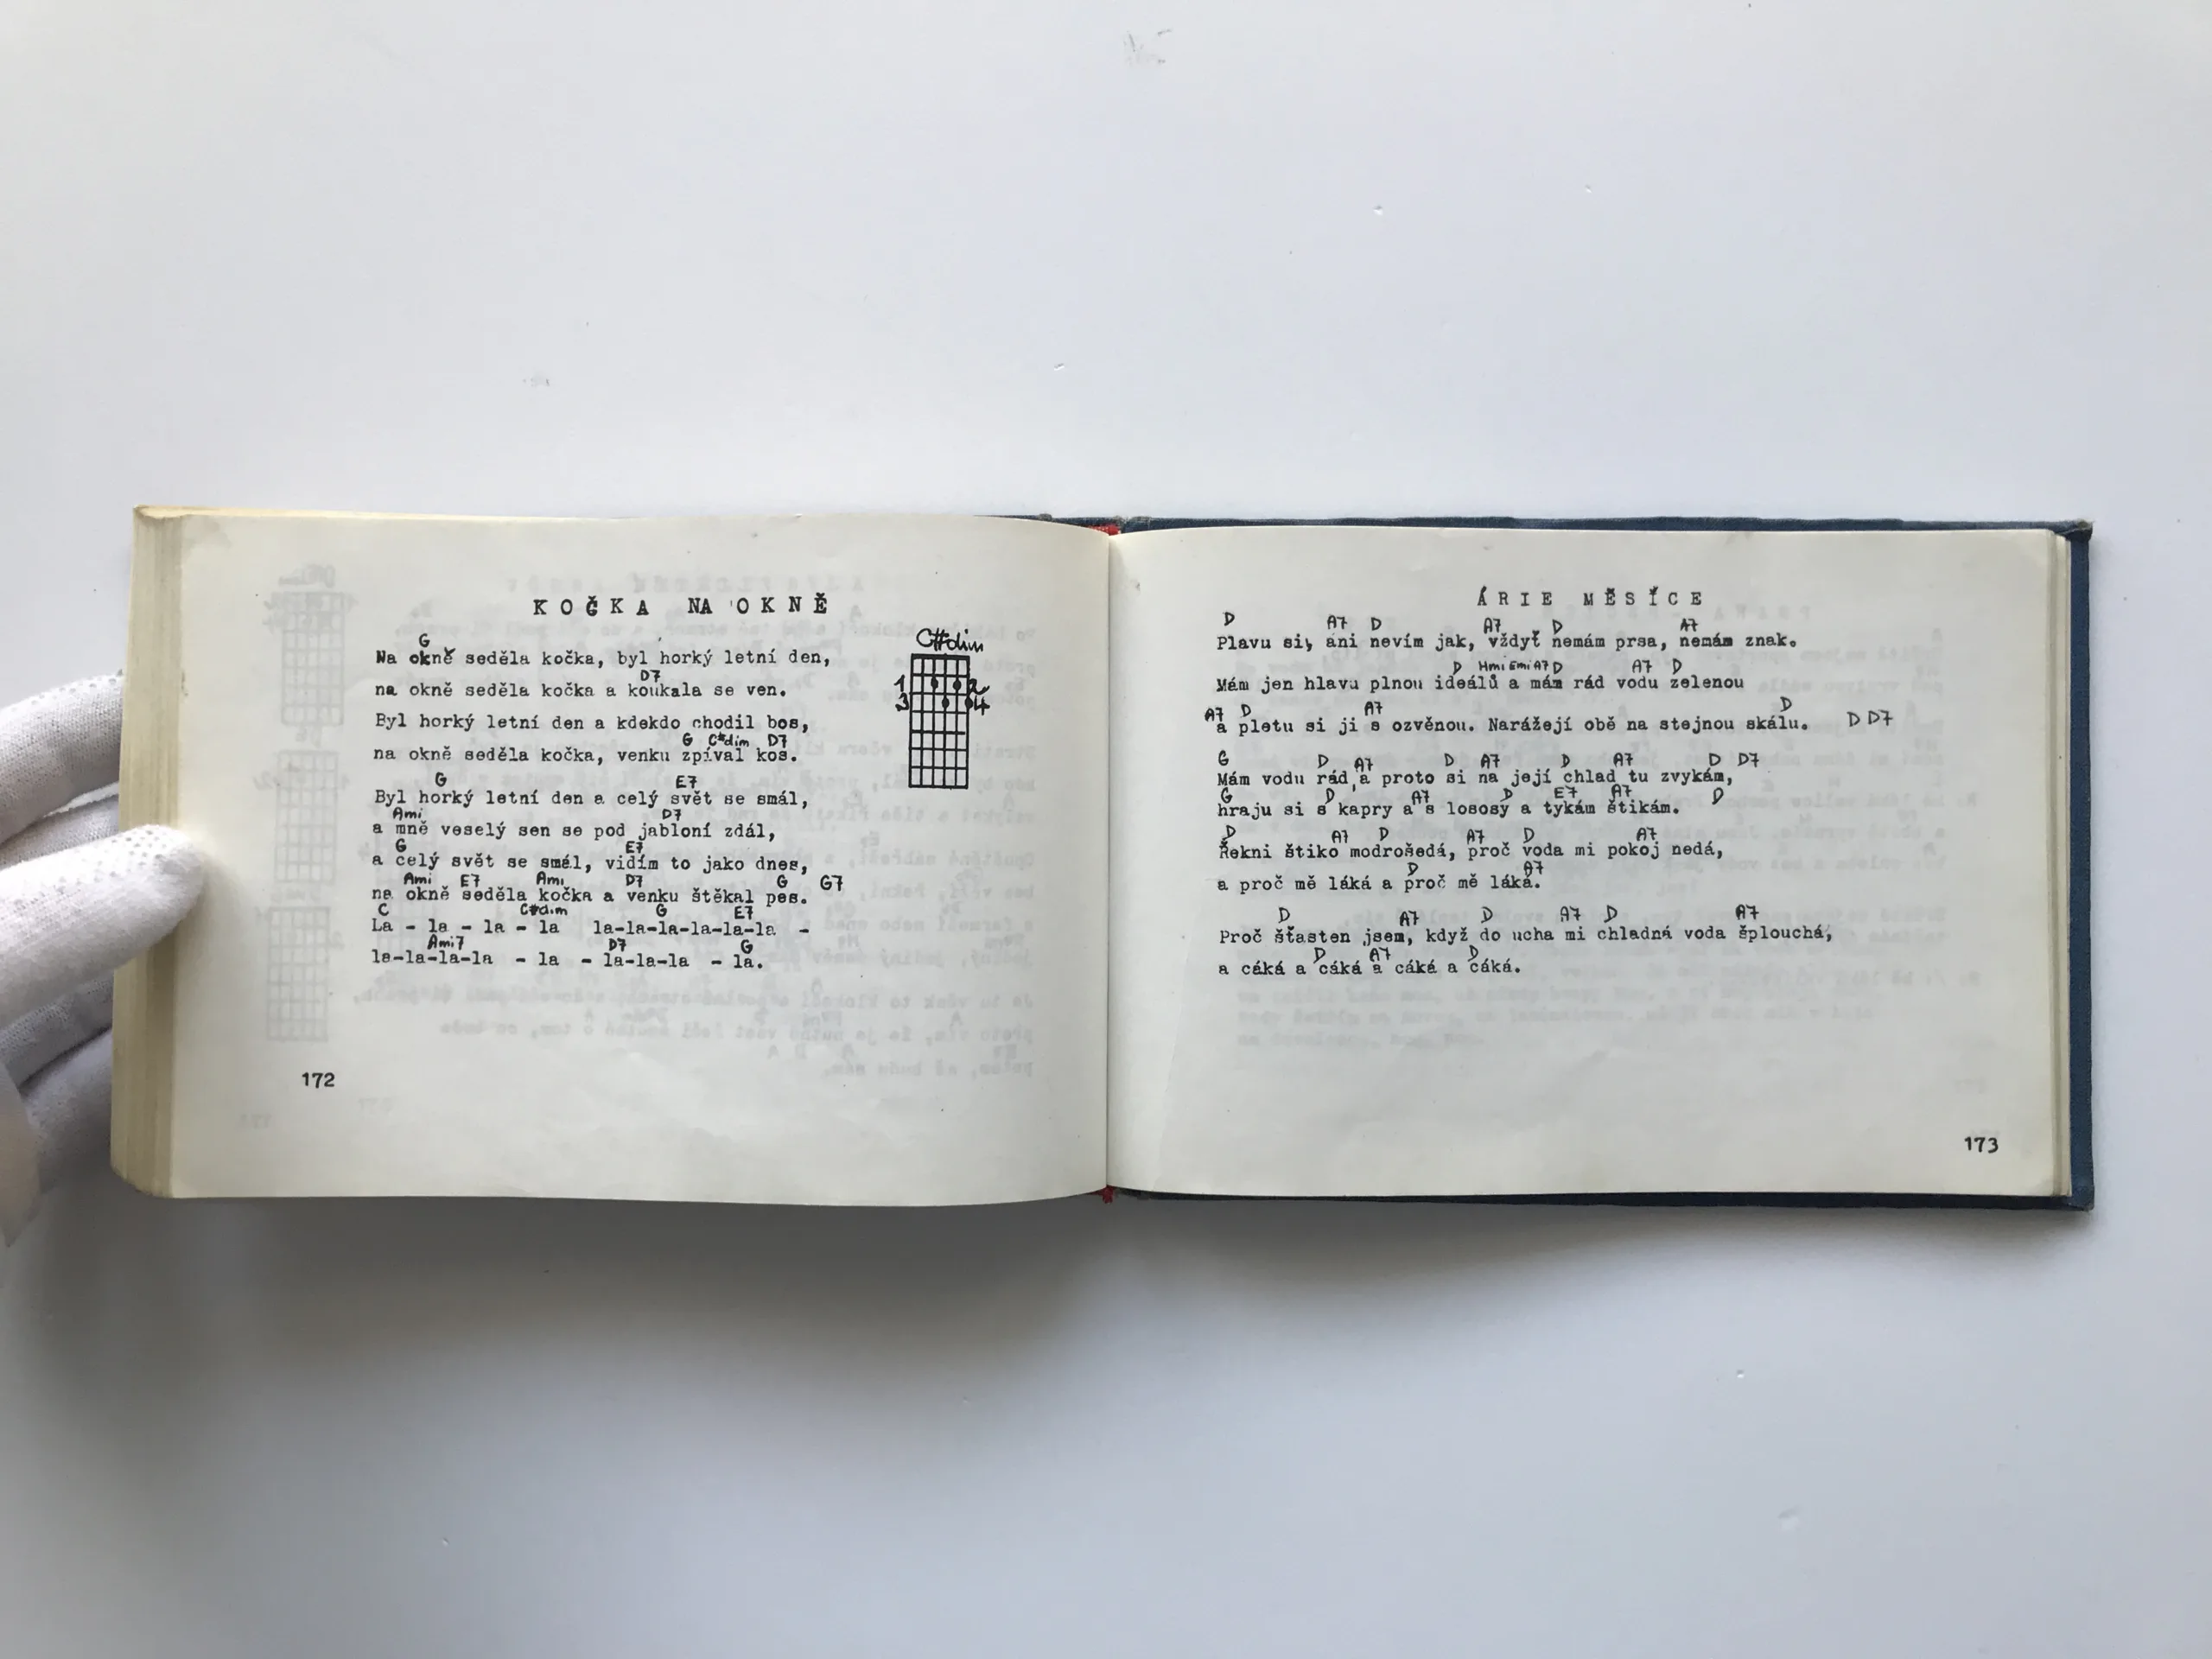 KOČKA NA OKNĚ
C#dim
1 2
3 4
G
Na okně seděla kočka, byl horký letní den,
D7
na okně seděla kočka a koukala se ven.
Byl horký letní den a kdekdo chodil bos,
G C#dim D7
na okně seděla kočka, venku zpíval kos.
G E7
Byl horký letní den a celý svět se smál,
Ami D7
a mně veselý sen se pod jabloní zdál,
G E7
a celý svět se smál, vidím to jako dnes,
Ami E7 Ami D7 G G7
na okně seděla kočka a venku štěkal pes.
C C#dim G E7
La - la - la - la la-la-la-la-la-la -
Ami7 D7 G
la-la-la-la - la - la-la-la - la.
172
ÁRIE MĚSÍCE
D A7 D A7 D A7
Plavu si, ani nevím jak, vždyť nemám prsa, nemám znak.
D Hmi Emi A7 D A7 D
Mám jen hlavu plnou ideálů a mám rád vodu zelenou
A7 D A7 D D D7
a pletu si ji s ozvěnou. Narážejí obě na stejnou skálu.
G D A7 D A7 D A7 D D7
Mám vodu rád a proto si na její chlad tu zvykám,
G D A7 D E7 A7 D
hraju si s kapry a s lososy a tykám štikám.
D A7 D A7 D A7
Řekni štiko modrošedá, proč voda mi pokoj nedá,
D A7
a proč mě láká a proč mě láká.
D A7 D A7 D A7
Proč šťasten jsem, když do ucha mi chladná voda šplouchá,
D A7 D
a cáká a cáká a cáká a cáká.
173